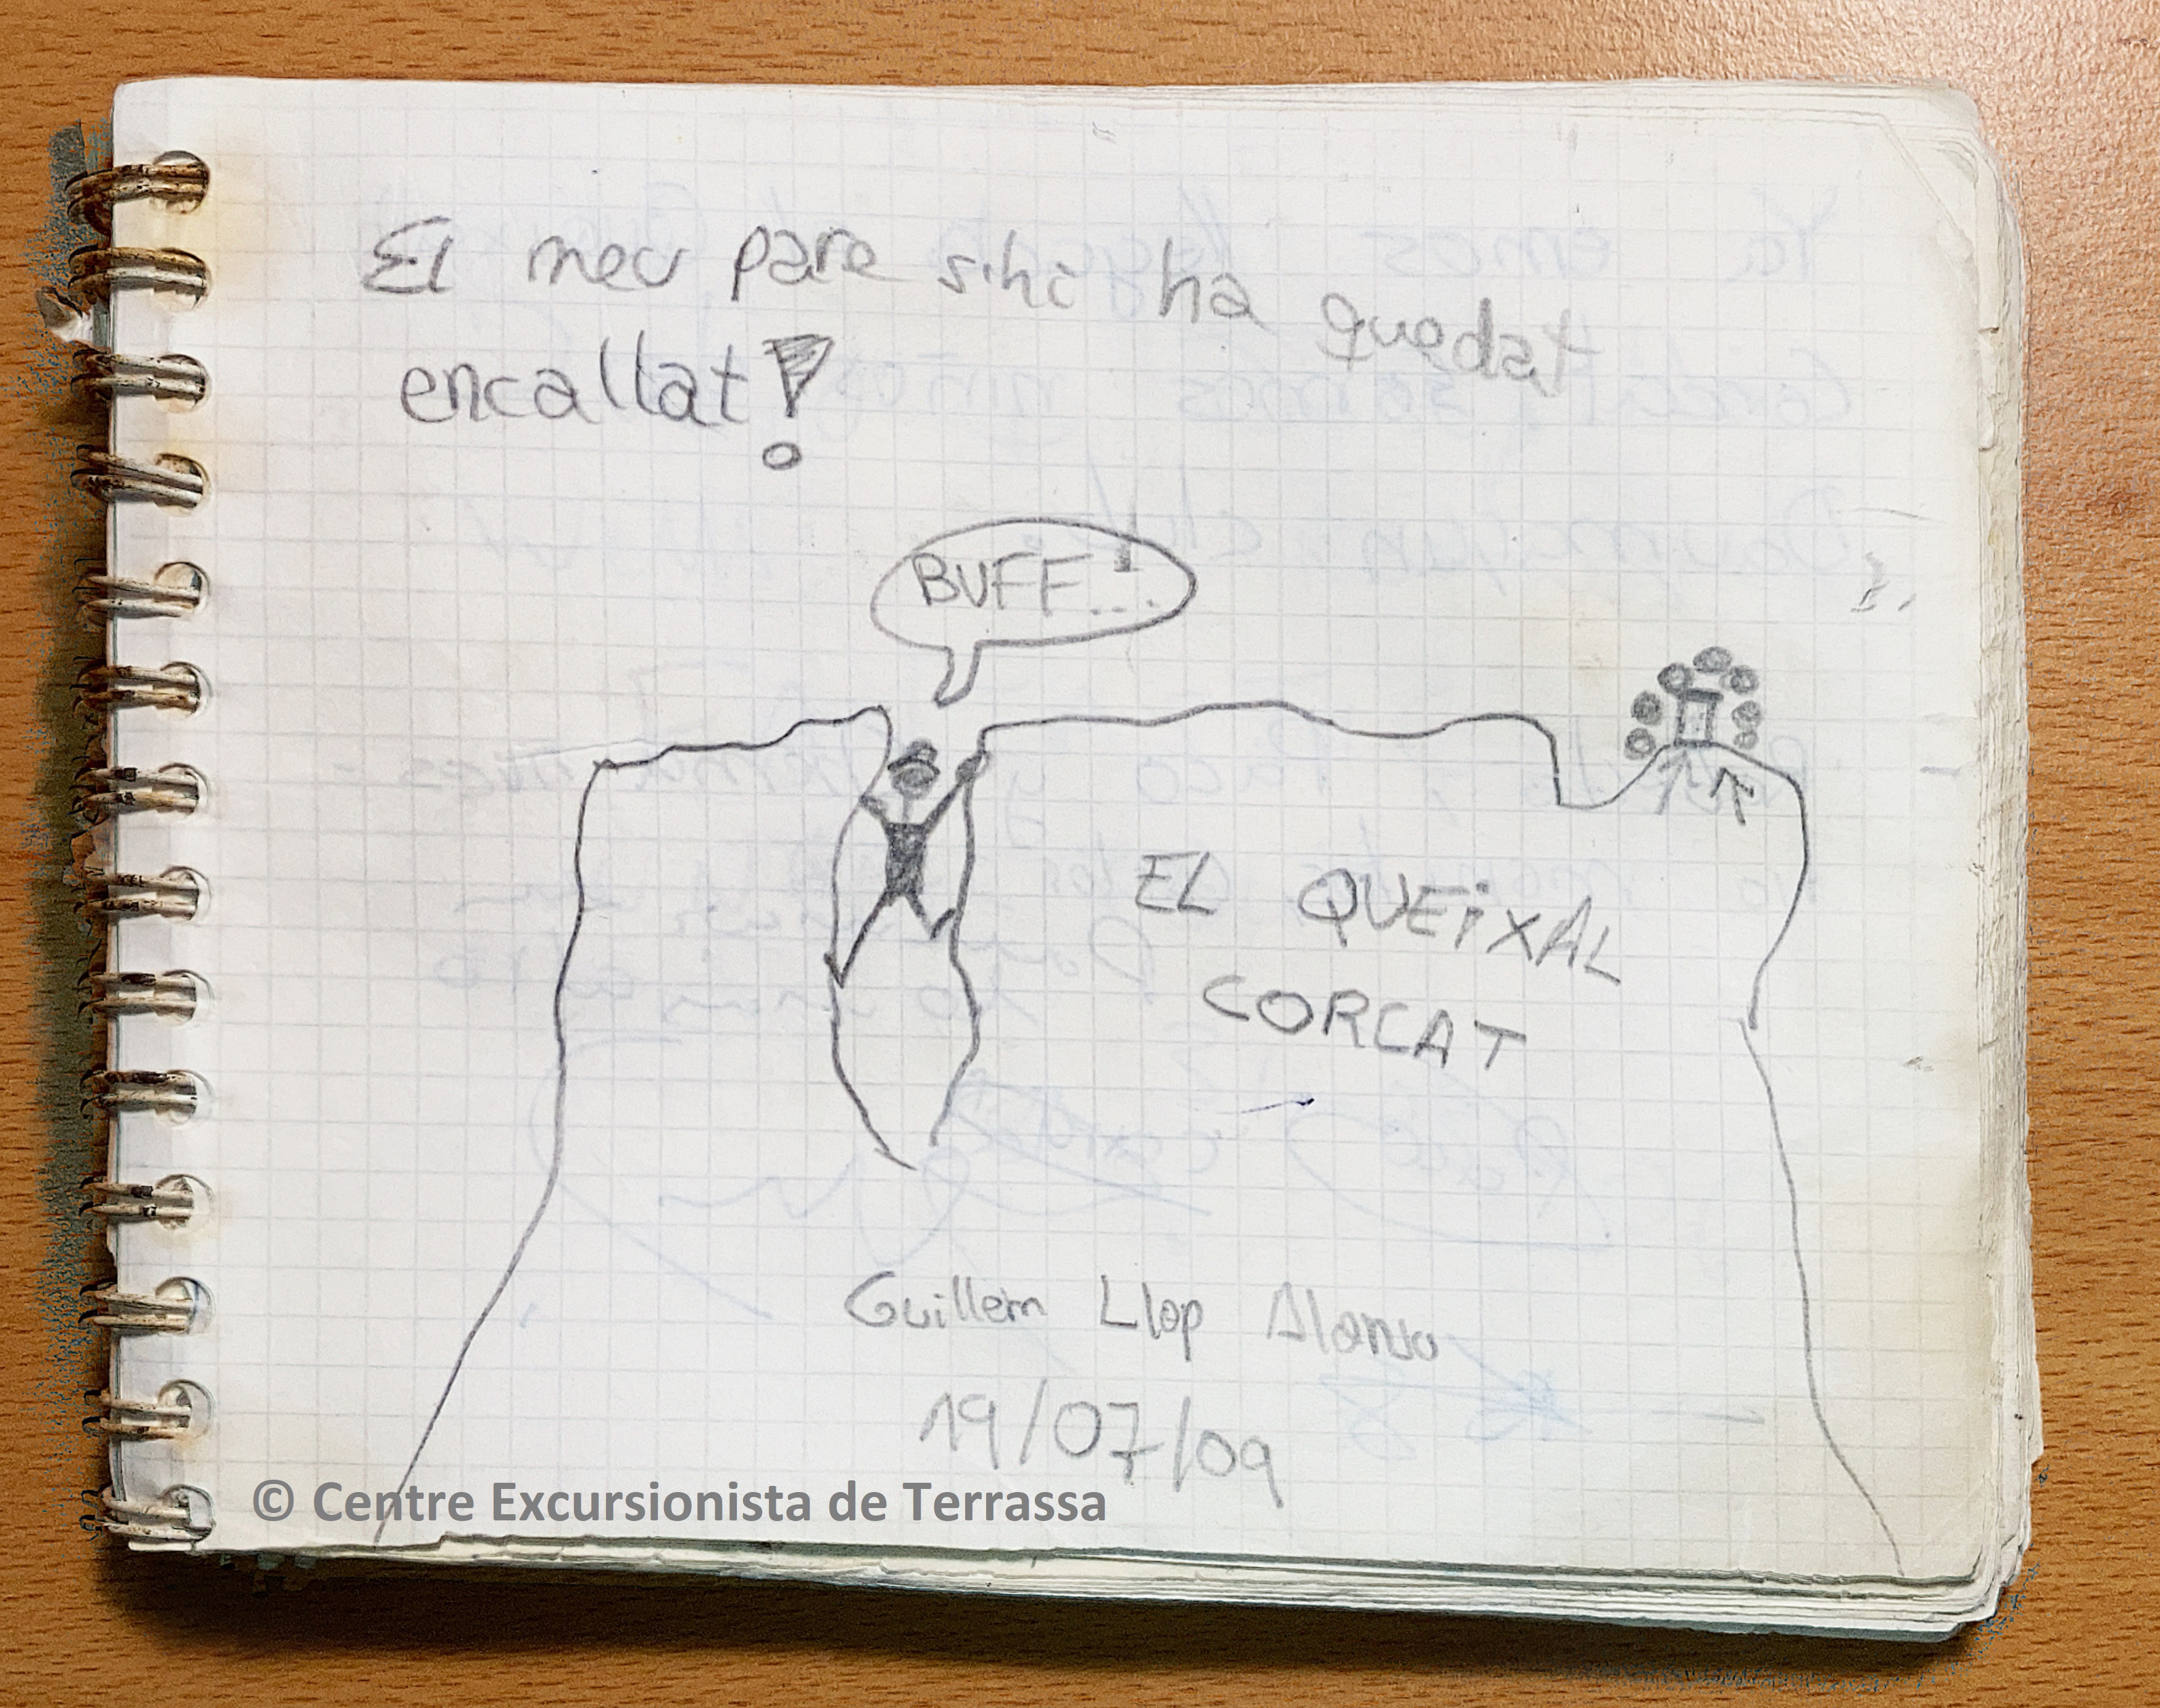 El meu pare sihi ha quedat
encallat!
BUFF...!
EL QUEiXAL
CORCAT
Guillem Llop Alonso
19/07/09
© Centre Excursionista de Terrassa